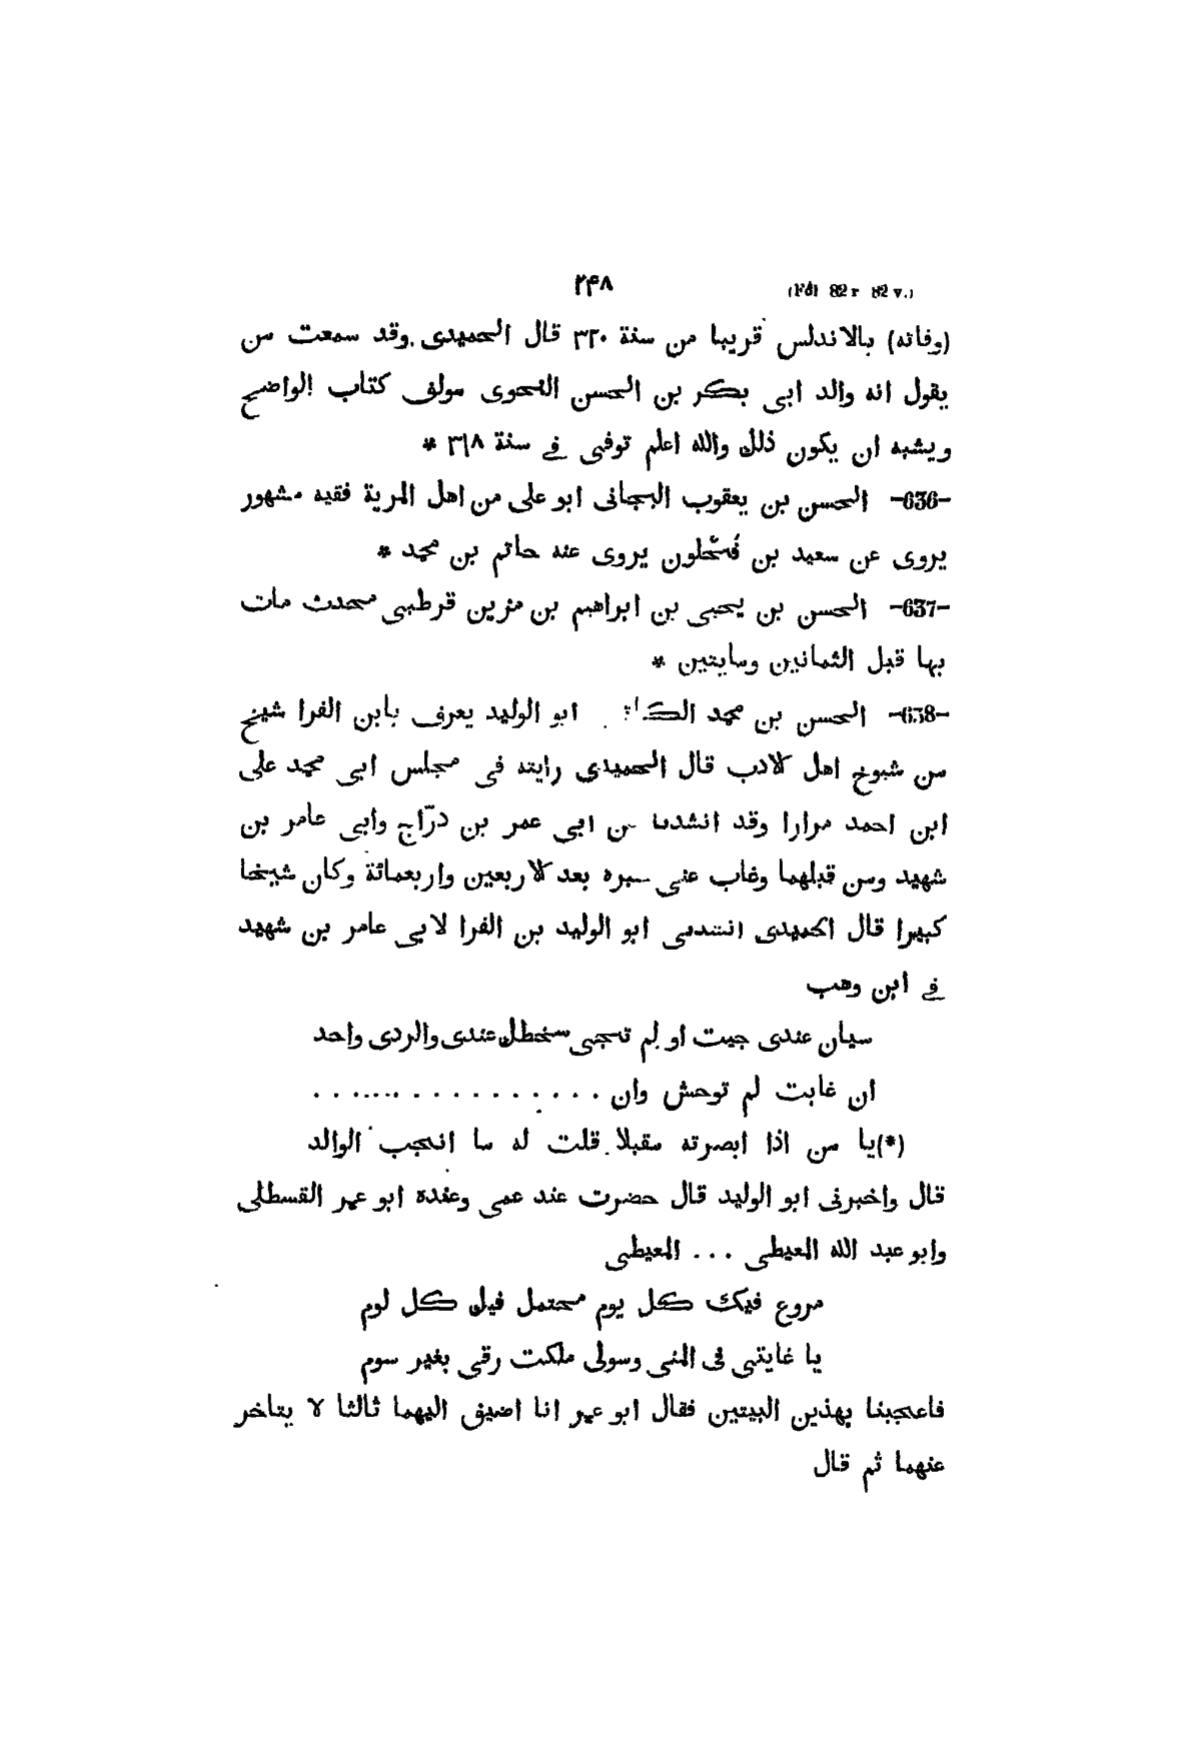 ٢٤٨ (Fol 82 r 82 v.)
(وفاته) بالاندلس قريبا من سنة ٣٢٠ قال الحميدى وقد سمعت من
يقول انه والد ابى بكر بن الحسن النحوى مولف كتاب الواضح
ويشبه ان يكون ذلك والله اعلم توفى فى سنة ٣١٨ *
-636- الحسن بن يعقوب البجانى ابو على من اهل المرية فقيه مشهور
يروى عن سعيد بن فُحْلون يروى عنه حاتم بن محمد *
-637- الحسن بن يحيى بن ابراهيم بن مزين قرطبى محدث مات
بها قبل الثمانين ومايتين *
-638- الحسن بن محمد ابو الوليد يعرف بابن الفرا شيخ
من شيوخ اهل الادب قال الحميدى رايته فى مجلس ابى محمد على
ابن احمد مرارا وقد انشدنا عن ابى عمر بن درّاج وابى عامر بن
شهيد ومن قبلهما وغاب عنى خبره بعد الاربعين واربعمائة وكان شيخا
كبيرا قال الحميدى انشدنى ابو الوليد بن الفرا لابى عامر بن شهيد
فى ابن وهب
سيان عندى جيت او لم تجى سخطك عندى والردى واحد
ان غابت لم توحش وان . . . . . . . . . . . . . . . .
(*) يا من اذا ابصرته مقبلا قلت له ما انجب الوالد
قال واخبرنى ابو الوليد قال حضرت عند عمى وعنده ابو عمر القسطلى
وابو عبد الله المعيطى . . . المعيطى
مروع فيك كل يوم محتمل فيك كل لوم
يا غايتى فى المنى وسولى ملكت رقى بغير سوم
فاعجبنا بهذين البيتين فقال ابو عمر انا اضيف اليهما ثالثا لا يتاخر
عنهما ثم قال